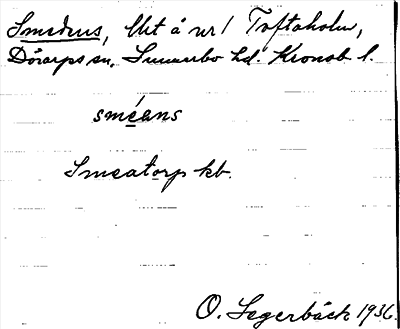 Smedens, lht å nr 1 Toftaholm,
Dörarps sn. Sunnerbo hd. Kronob. l.
sméans
Smeatorp kb.
O. Segerbäck 1936.